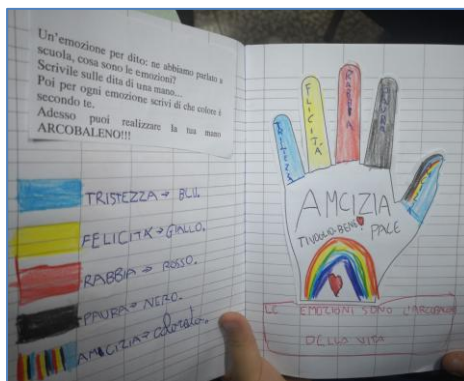 Un'emozione per dito: ne abbiamo parlato a
scuola, cosa sono le emozioni?
Scrivile sulle dita di una mano...
Poi per ogni emozione scrivi di che colore è
secondo te.
Adesso puoi realizzare la tua mano
ARCOBALENO!!!
TRISTEZZA → BLU.
FELICITÀ → GIALLO.
RABBIA → ROSSO.
PAURA → NERO.
AMICIZIA → colorato.
FELICITÀ
RABBIA
PAURA
AMCIZIA
TIVOGLIO BENE
PACE
LE EMOZIONI SONO L'ARCOBALENO
DELLA VITA